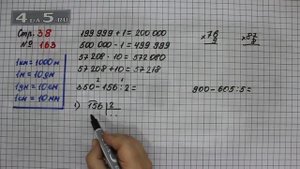 4 А 5 .НЕТ
Стр. 38
№ 163
1км = 1000м
1м = 10дм
1дм = 10см
1см = 10мм
199 999 + 1 = 200 000
500 000 - 1 = 499 999
57 208 · 10 = 572080
57 208 + 10 = 57218
350 - 156 : 2 =
2 1
1) 156 2
× 76
× 87
900 - 605 : 5 =